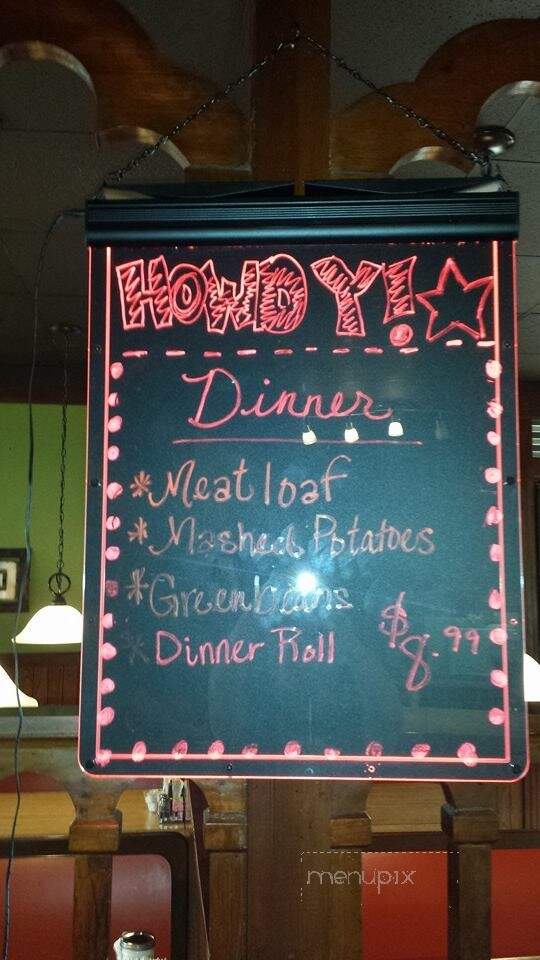 HOWDY!
Dinner
*Meatloaf
*Mashed Potatoes
*Greenbeans
*Dinner Roll
$8.99
menupix